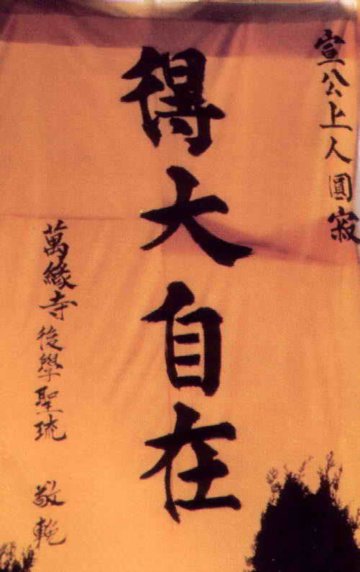 宣公上人圓寂
得大自在
萬緣寺後學聖琉 敬輓